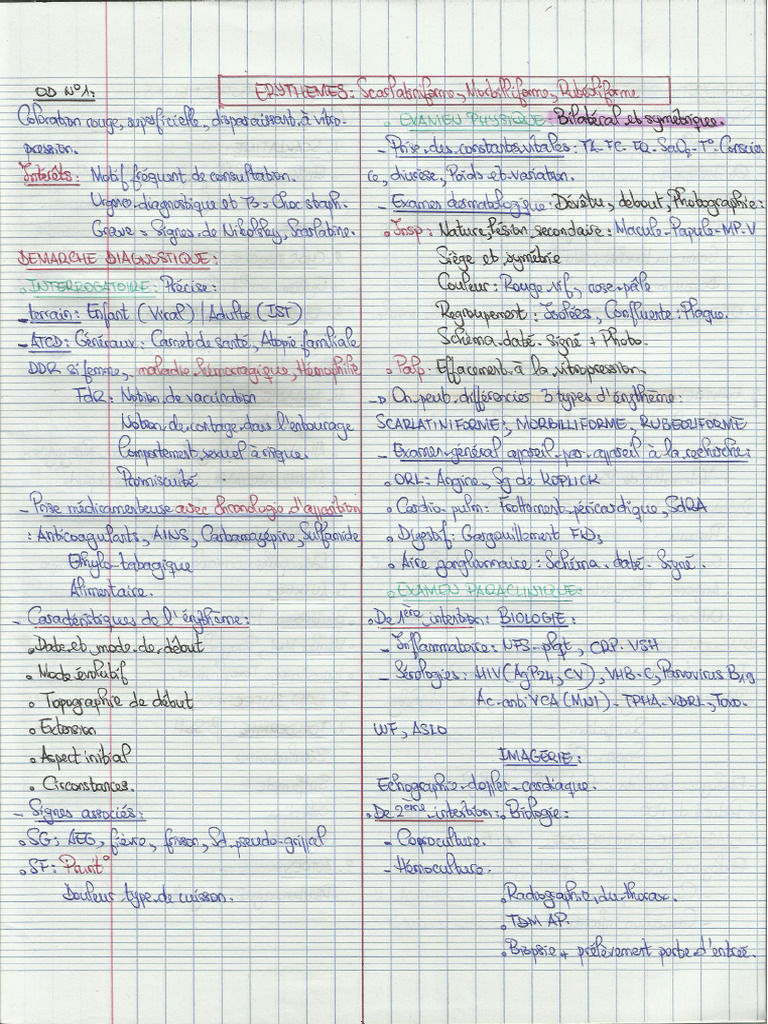 OD N°1:
ERYTHEMES: Scarlatiniforme, Morbilliforme, Rubéoliforme
Coloration rouge, superficielle, disparaissant à vitro-
pression.
Intérêts: Motif fréquent de consultation.
Urgence diagnostique et : Choc staph.
Grave = Signes de Nikolsky, Scarlatine.
DEMARCHE DIAGNOSTIQUE:
INTERROGATOIRE: Précise:
- terrain: Enfant (Viral) / Adulte (IST)
- ATCD: Généraux: Carnet de santé, Atopie familiale
DDR si femme, maladie hémorragique, Hémophilie
FdR: Notion de vaccination
Notion de contage dans l'entourage
Comportement sexuel à risque.
Promiscuité
- Prise médicamenteuse avec chronologie d'apparition
: Anticoagulants, AINS, Carbamazépine, Sulfamide
Ethylo-tabagique
Alimentaire.
- Caractéristiques de l'érythème:
• Date et mode de début
• Mode évolutif
• Topographie de début
• Extension
• Aspect initial
• Circonstances.
- Signes associés:
• SG: AEG, fièvre, frisson, Sd pseudo-grippal
• SF: Prurit
Douleur type de cuisson.
• EXAMEN PHYSIQUE: Bilatéral et symétrique.
- Prise des constantes vitales: TA-FC-FR-SaO2-T°-Conscien
ce, diurèse, Poids et variation.
- Examen dermatologique: Dévêtu, debout, Photographie:
• Insp: Nature, lésion secondaire: Macule-Papule-MP-V
Siège et symétrie
Couleur: Rouge vif, rose pâle
Regroupement: Isolées, Confluente: Plaque.
Schéma daté signé + Photo.
• Palp: Effacement à la vitropression.
→ On peut différencier 3 types d'érythème:
SCARLATINIFORME, MORBILLIFORME, RUBEOLIFORME
- Examen général appareil par appareil à la recherche:
• ORL: Angine, Sg de KOPLICK
• Cardio-pulm: Frottement péricardique, SdRA
• Digestif: Gargouillement FID
• Aire ganglionnaire: Schéma daté Signé.
• EXAMEN PARACLINIQUE:
• De 1ère intention: BIOLOGIE:
- Inflammatoire: NFS-plqt, CRP-VSH
- Sérologies: HIV (AgP24, CV), VHB-C, Parvovirus B19
Ac-anti VCA (MNI)-TPHA-VDRL, Toxo.
WF, ASLO
IMAGERIE:
Echographie-doppler-cardiaque.
• De 2ème intention: Biologie:
- Coproculture.
- Hémoculture.
• Radiographie du thorax.
• TDM AP.
• Biopsie + prélèvement porte d'entrée.